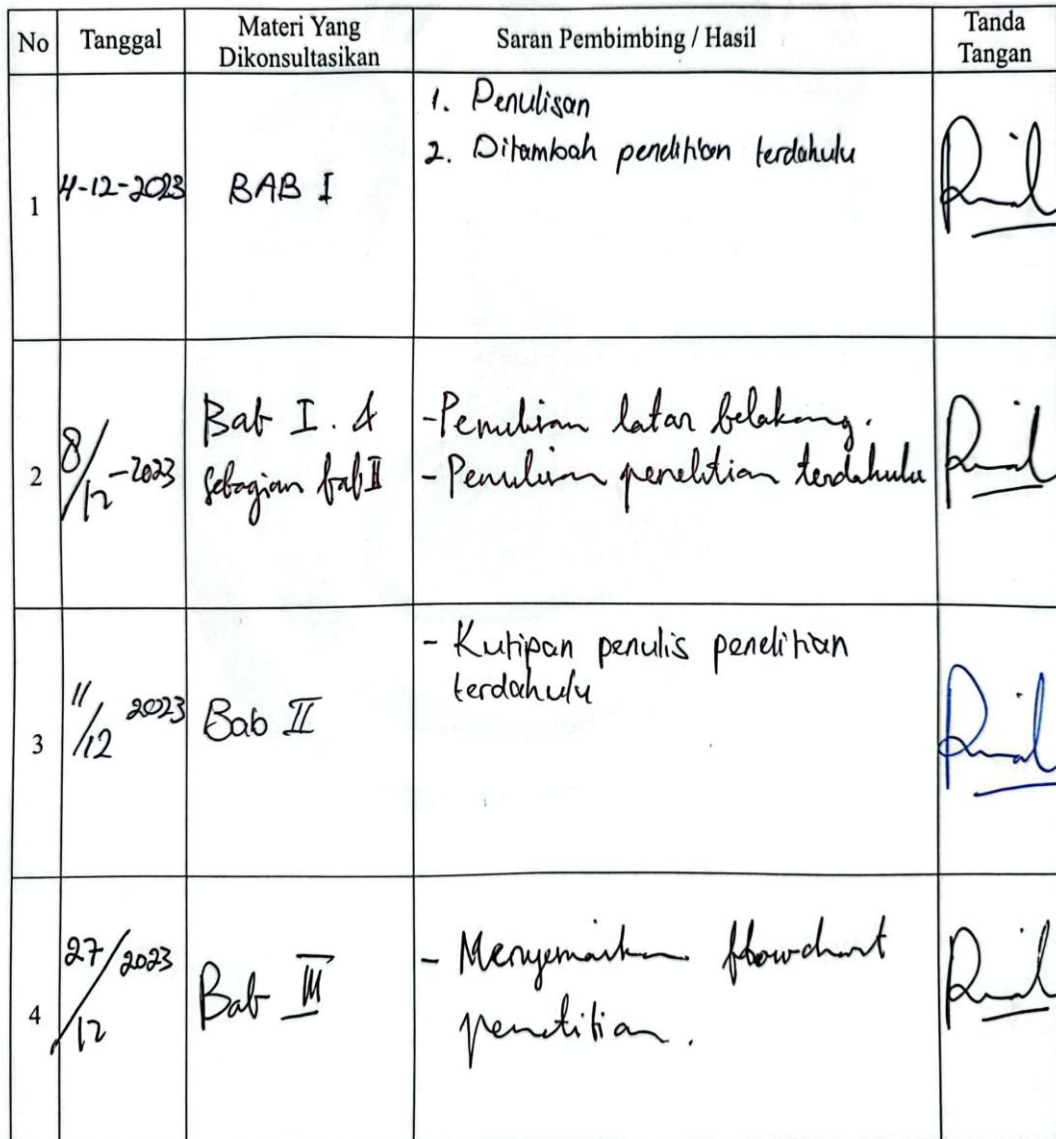 No
Tanggal
Materi Yang
Dikonsultasikan
Saran Pembimbing / Hasil
Tanda
Tangan
1
4-12-2023
BAB I
1. Penulisan
2. Ditambah penelitian terdahulu
2
8/12-2023
Bab I. &
Sebagian bab II
-Penulisan latar belakang.
-Penulisan penelitian terdahulu
3
11/12 2023
Bab II
- Kutipan penulis penelitian
terdahulu
4
27/12 2023
Bab III
- flowchart
penelitian.